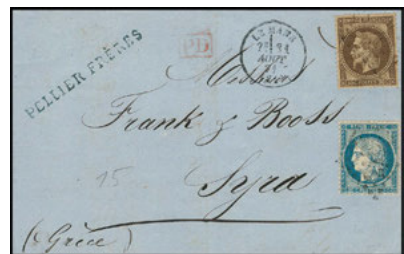 PELLIER FRÈRES
PD
LE MANS
AOUT
Messieurs
Frank & Booss
Syra
15
(Grèce)